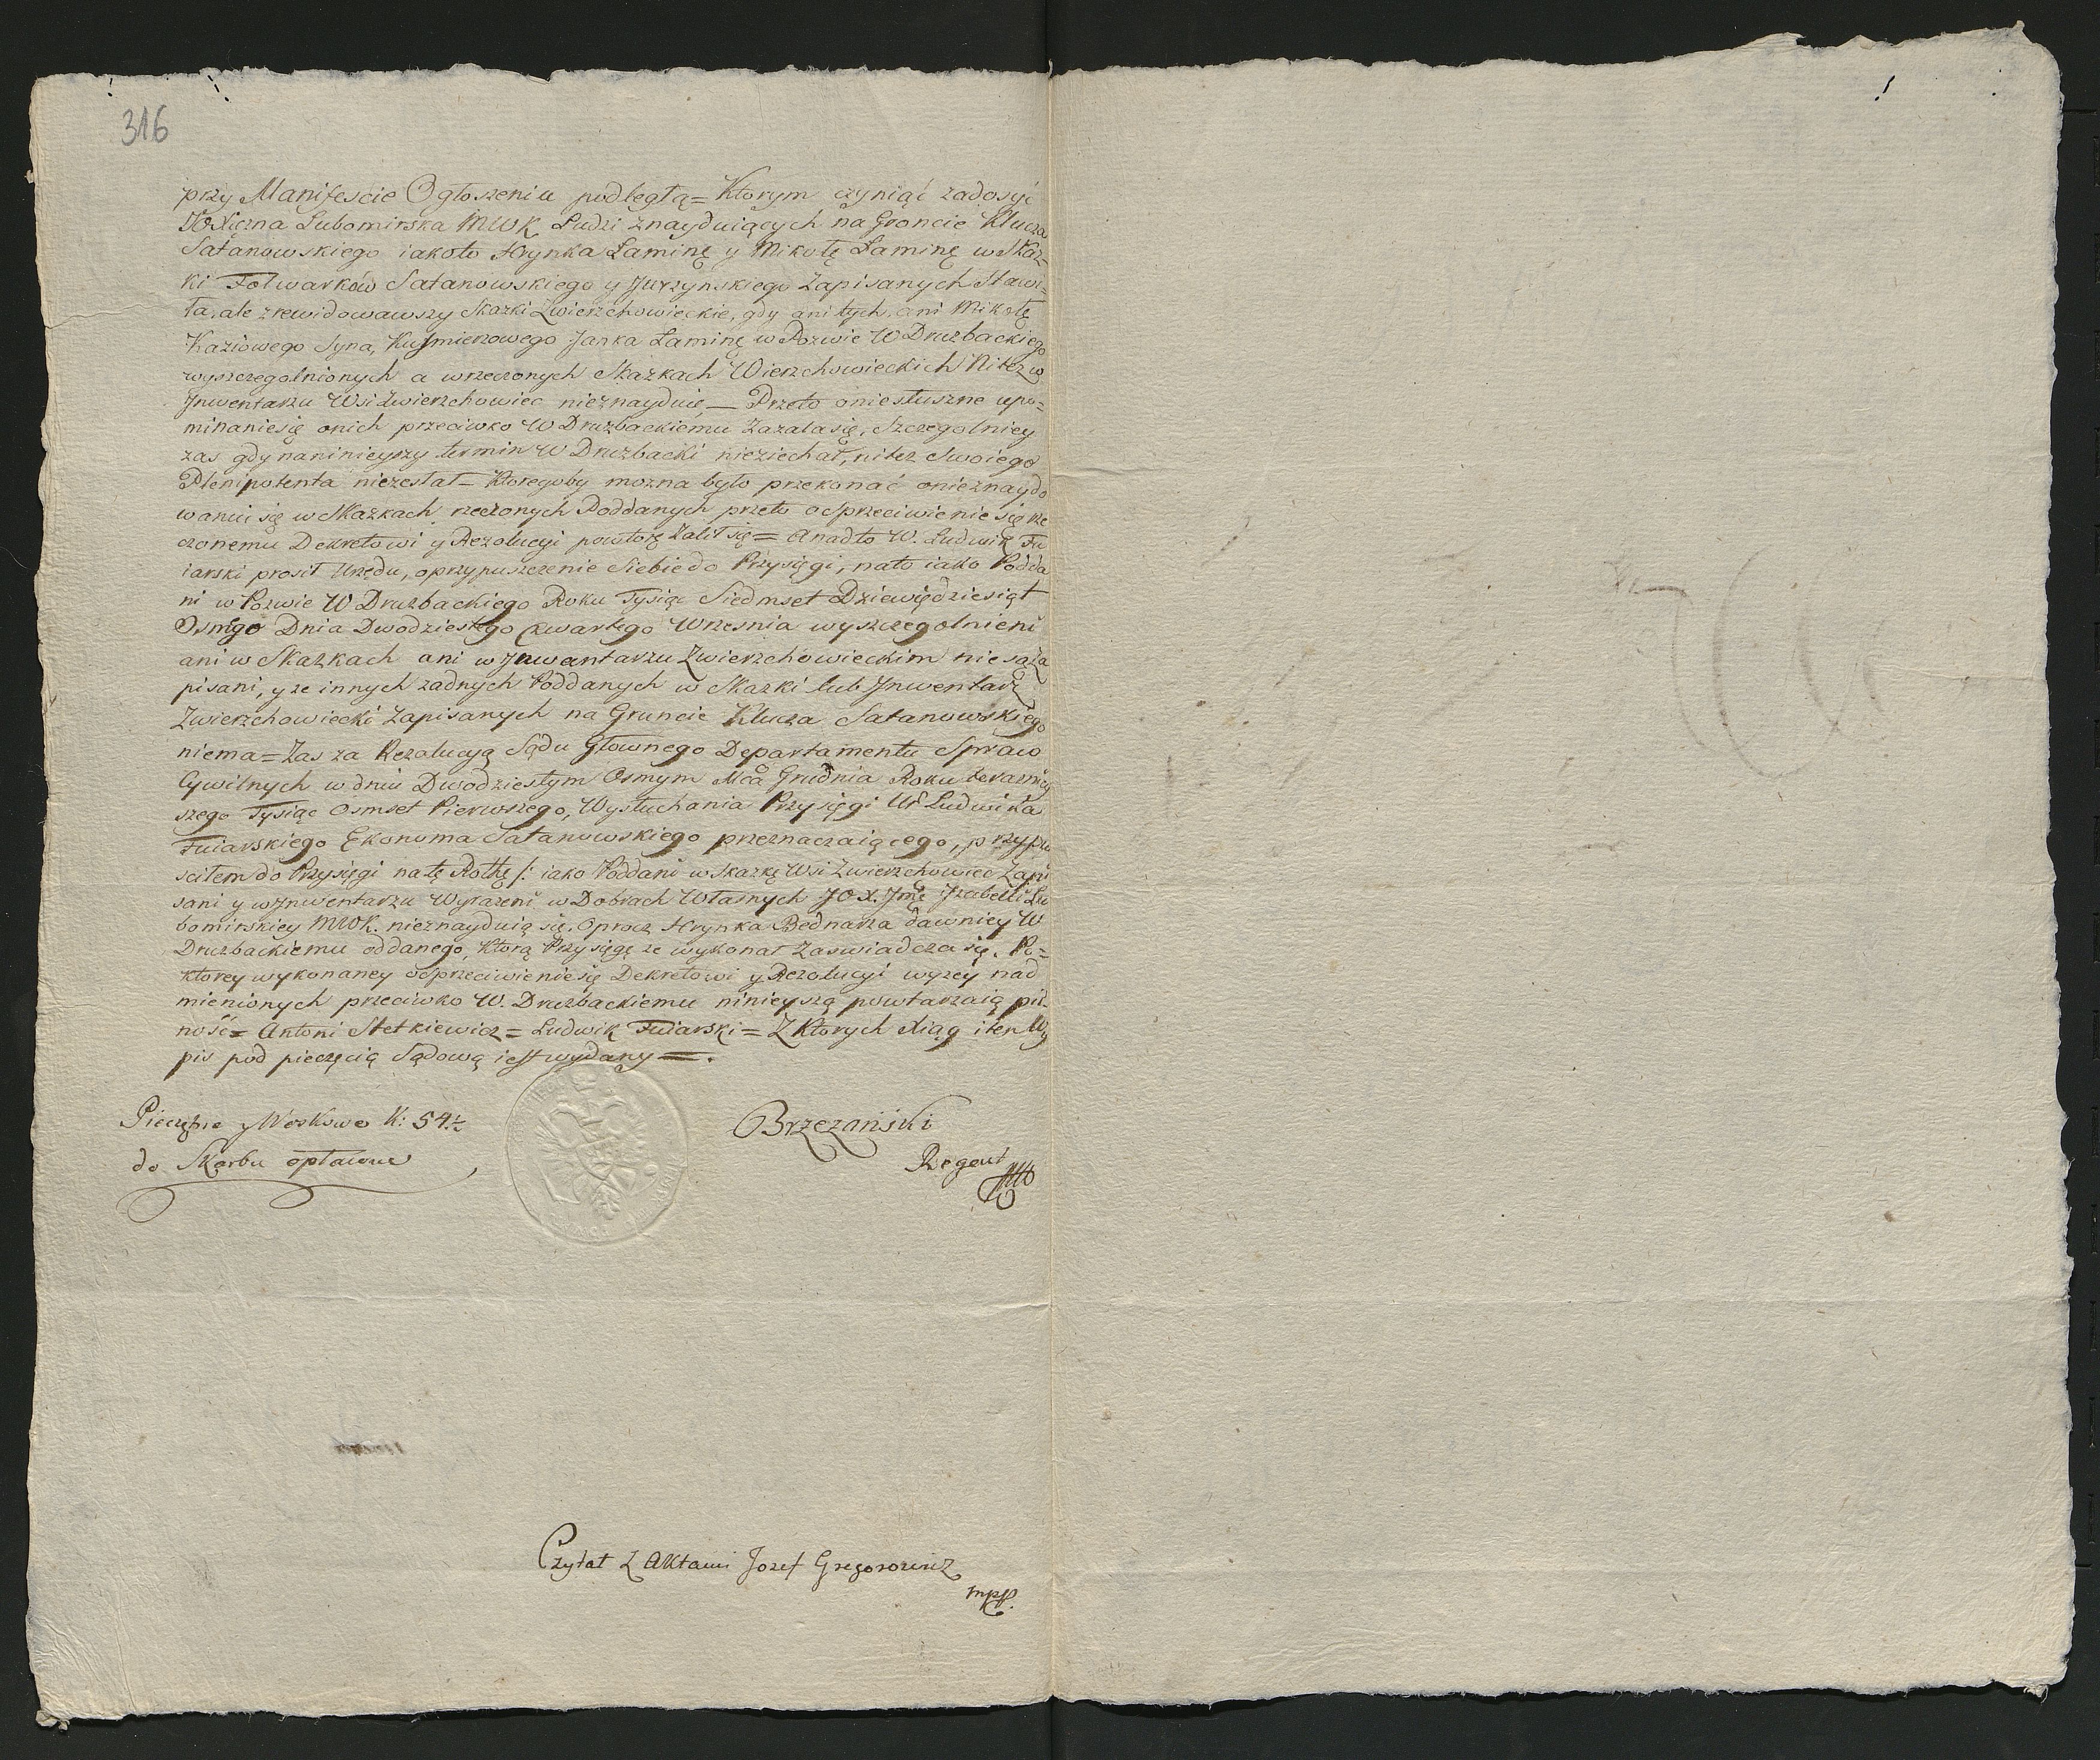 316
przy Manifescie Ogłoszeniu podległą = Ktorym czyniąć zadosyć
JO Xiężna Lubomirska MWK Ludzi znayduiących na Groncie Klucza
Satanowskiego iakoto Hrynka Łaminę y Mikołę Łaminę w Skaz=
ki Folwarków Satanowskiego y Jurzynskiego Zapisanych Stawi=
ła, ale zrewidowawszy Skazki Zwierzchowieckie, gdy ani tych, ani Mikołę
Kaziowego Syna, Kuśmierzowego Janka Łaminę w Pozwie W Druzbackiego
wyszczegolnionych a wrzeczonych Skazkach Wierzchowieckich Nitez w
Jnwentarzu Wsi Zwierzchowiec nieznayduie — Przeto oniesłuszne upo=
minaniesię onich przeciwko W Druzbackiemu Zazalasię, Szczegolniey
zas gdy naninieyszy termin W Druzbacki nieziechał, nitez Swoiego
Plenipotenta niezesłał = Ktoregoby mozna było przekonać onieznaydo
waniu się w Skazkach rzeczonych Poddanych przeto o Sprzeciwienie się rze
czonemu Dekretowi y Rezolucyi powtorę Zalił się = Anadto W. Ludwik Fu
iarski prosił Urzędu, oprzypuszczenie Siebie do Przysięgi, nato iako Podda
ni w Pozwie W Druzbackiego Roku Tysiąc Siedmset Dziewiędziesiąt
Osmego Dnia Dwodziestego Czwartego Wrzesnia wyszczegolnieni
ani w Skazkach ani w Jnwantarzu Zwierzchowieckim nie są Za
pisani, y ze innych zadnych Poddanych w Skazki lub Jnwentarz
Zwierzchowiecki Zapisanych na Gruncie Klucza Satanowskiego
niema = Zas za Rezolucyą Sądu Głownego Departamentu Spraw
Cywilnych w dniu Dwodziestym Osmym Mca Grudnia Roku terazniey
szego Tysiąc Osmset Pierwszego, Wysłuchania Przysięgi Ur Ludwika
Fuiarskiego Ekonoma Satanowskiego przeznaczaiącego, przypu
sciłem do Przysięgi na tę Rothę /: iako Poddani w Skazkę Wsi Zwierzchowiec Zapi
sani y w Jnwentarzu Wyrazeni w Dobrach Własnych JO X. Jmę Jzabelli Lu
bomirskiey MWK. nieznayduią się, Oprocz Hrynka Bednarza dawniey W
Druzbackiemu oddanego, Ktorą Przysięgę ze wykonał Zaswiadcza się. Po=
Ktorey wykonaney osprzeciwieniesię Dekretowi y Rezolucyi wyzey nad
mienionych przeciwko W. Druzbackiemu ninieyszą powtarzaią pil=
ność = Antoni Stetkiewicz = Ludwik Fuiarski = Z Ktorych Xiąg i ten Wy
pis pod pieczęcią Sądową iest wydany = .
Pieczętne y Woskowe K: 54 ½
do Skarbu opłacone
Brzezański
Regent
Czytał Z Aktami Jozef Gregorowicz
mpp.